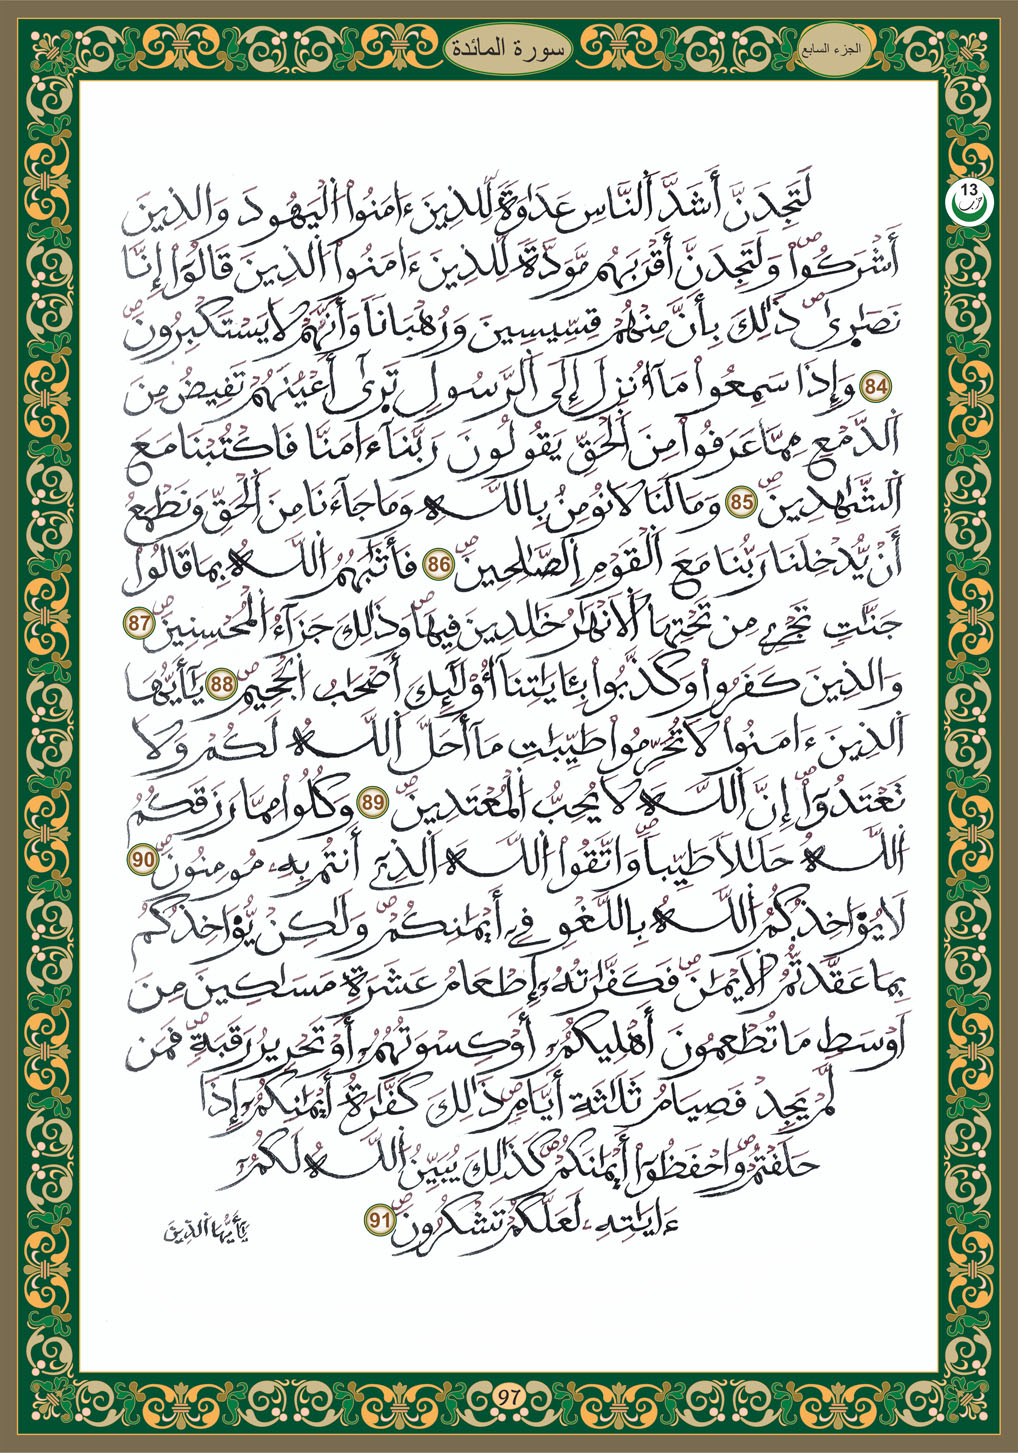 الجزء السابع
سورة المائدة
13
حزب
لَتَجِدَنَّ أَشَدَّ اَلنَّاسِ عَدَٰوَةٗ لِّلذِينَ ءَامَنُواْ اُلْيَهُودَ وَالذِينَ
أَشْرَكُواْۖ وَلَتَجِدَنَّ أَقْرَبَهُم مَّوَدَّةٗ لِّلذِينَ ءَامَنُواْ اُلذِينَ قَالُوٓاْ إِنَّا
نَصَٰرٜىٰۖ ذَٰلِكَ بِأَنَّ مِنْهُمْ قِسِّيسِينَ وَرُهْبَاناٗ وَأَنَّهُمْ لَا يَسْتَكْبِرُونَۖ
84 وَإِذَا سَمِعُواْ مَآ أُنزِلَ إِلَى اَلرَّسُولِ تَرٜىٰٓ أَعْيُنَهُمْ تَفِيضُ مِنَ
اَلدَّمْعِ مِمَّا عَرَفُواْ مِنَ اَلْحَقِّ يَقُولُونَ رَبَّنَآ ءَامَنَّا فَاكْتُبْنَا مَعَ
اَلشَّٰهِدِينَۖ 85 وَمَا لَنَا لَا نُومِنُ بِاللَّهِ وَمَا جَآءَنَا مِنَ اَلْحَقِّ وَنَطْمَعُ
أَنْ يُّدْخِلَنَا رَبُّنَا مَعَ اَلْقَوْمِ اِلصَّٰلِحِينَۖ 86 فَأَثَٰبَهُمُ اُللَّهُ بِمَا قَالُواْ
جَنَّٰتٖ تَجْرِے مِن تَحْتِهَا اَلَانْهَٰرُ خَٰلِدِينَ فِيهَاۖ وَذَٰلِكَ جَزَآءُ اُلْمُحْسِنِينَۖ 87
وَالذِينَ كَفَرُواْ وَكَذَّبُواْ بِـَٔايَٰتِنَآ أُوْلَٰٓئِكَ أَصْحَٰبُ اُلْجَحِيمِۖ 88 يَٰٓأَيُّهَا
اَلذِينَ ءَامَنُواْ لَا تُحَرِّمُواْ طَيِّبَٰتِ مَآ أَحَلَّ اَللَّهُ لَكُمْ وَلَا
تَعْتَدُوٓاْۖ إِنَّ اَللَّهَ لَا يُحِبُّ اُلْمُعْتَدِينَۖ 89 وَكُلُواْ مِمَّا رَزَقَكُمُ
اُللَّهُ حَلَٰلاٗ طَيِّباٗۖ وَاتَّقُواْ اُللَّهَ اَلذِےٓ أَنتُم بِهِۦ مُومِنُونَۖ 90
لَا يُؤَاخِذُكُمُ اُللَّهُ بِاللَّغْوِ فِےٓ أَيْمَٰنِكُمْۖ وَلَٰكِنْ يُّؤَاخِذُكُم
بِمَا عَقَّدتُّمُ اُلَايْمَٰنَۖ فَكَفَّٰرَتُهُۥٓ إِطْعَامُ عَشَرَةِ مَسَٰكِينَ مِنَ
اَوْسَطِ مَا تُطْعِمُونَ أَهْلِيكُمُۥٓ أَوْ كِسْوَتُهُمُۥٓ أَوْ تَحْرِيرُ رَقَبَةٖۖ فَمَن
لَّمْ يَجِدْ فَصِيَامُ ثَلَٰثَةِ أَيَّامٖۖ ذَٰلِكَ كَفَّٰرَةُ أَيْمَٰنِكُمُۥٓ إِذَا
حَلَفْتُمْۖ وَاحْفَظُوٓاْ أَيْمَٰنَكُمْۖ كَذَٰلِكَ يُبَيِّنُ اُللَّهُ لَكُمُۥٓ
ءَايَٰتِهِۦ لَعَلَّكُمْ تَشْكُرُونَۖ 91
يَٰٓأَيُّهَا اَلذِينَ
97